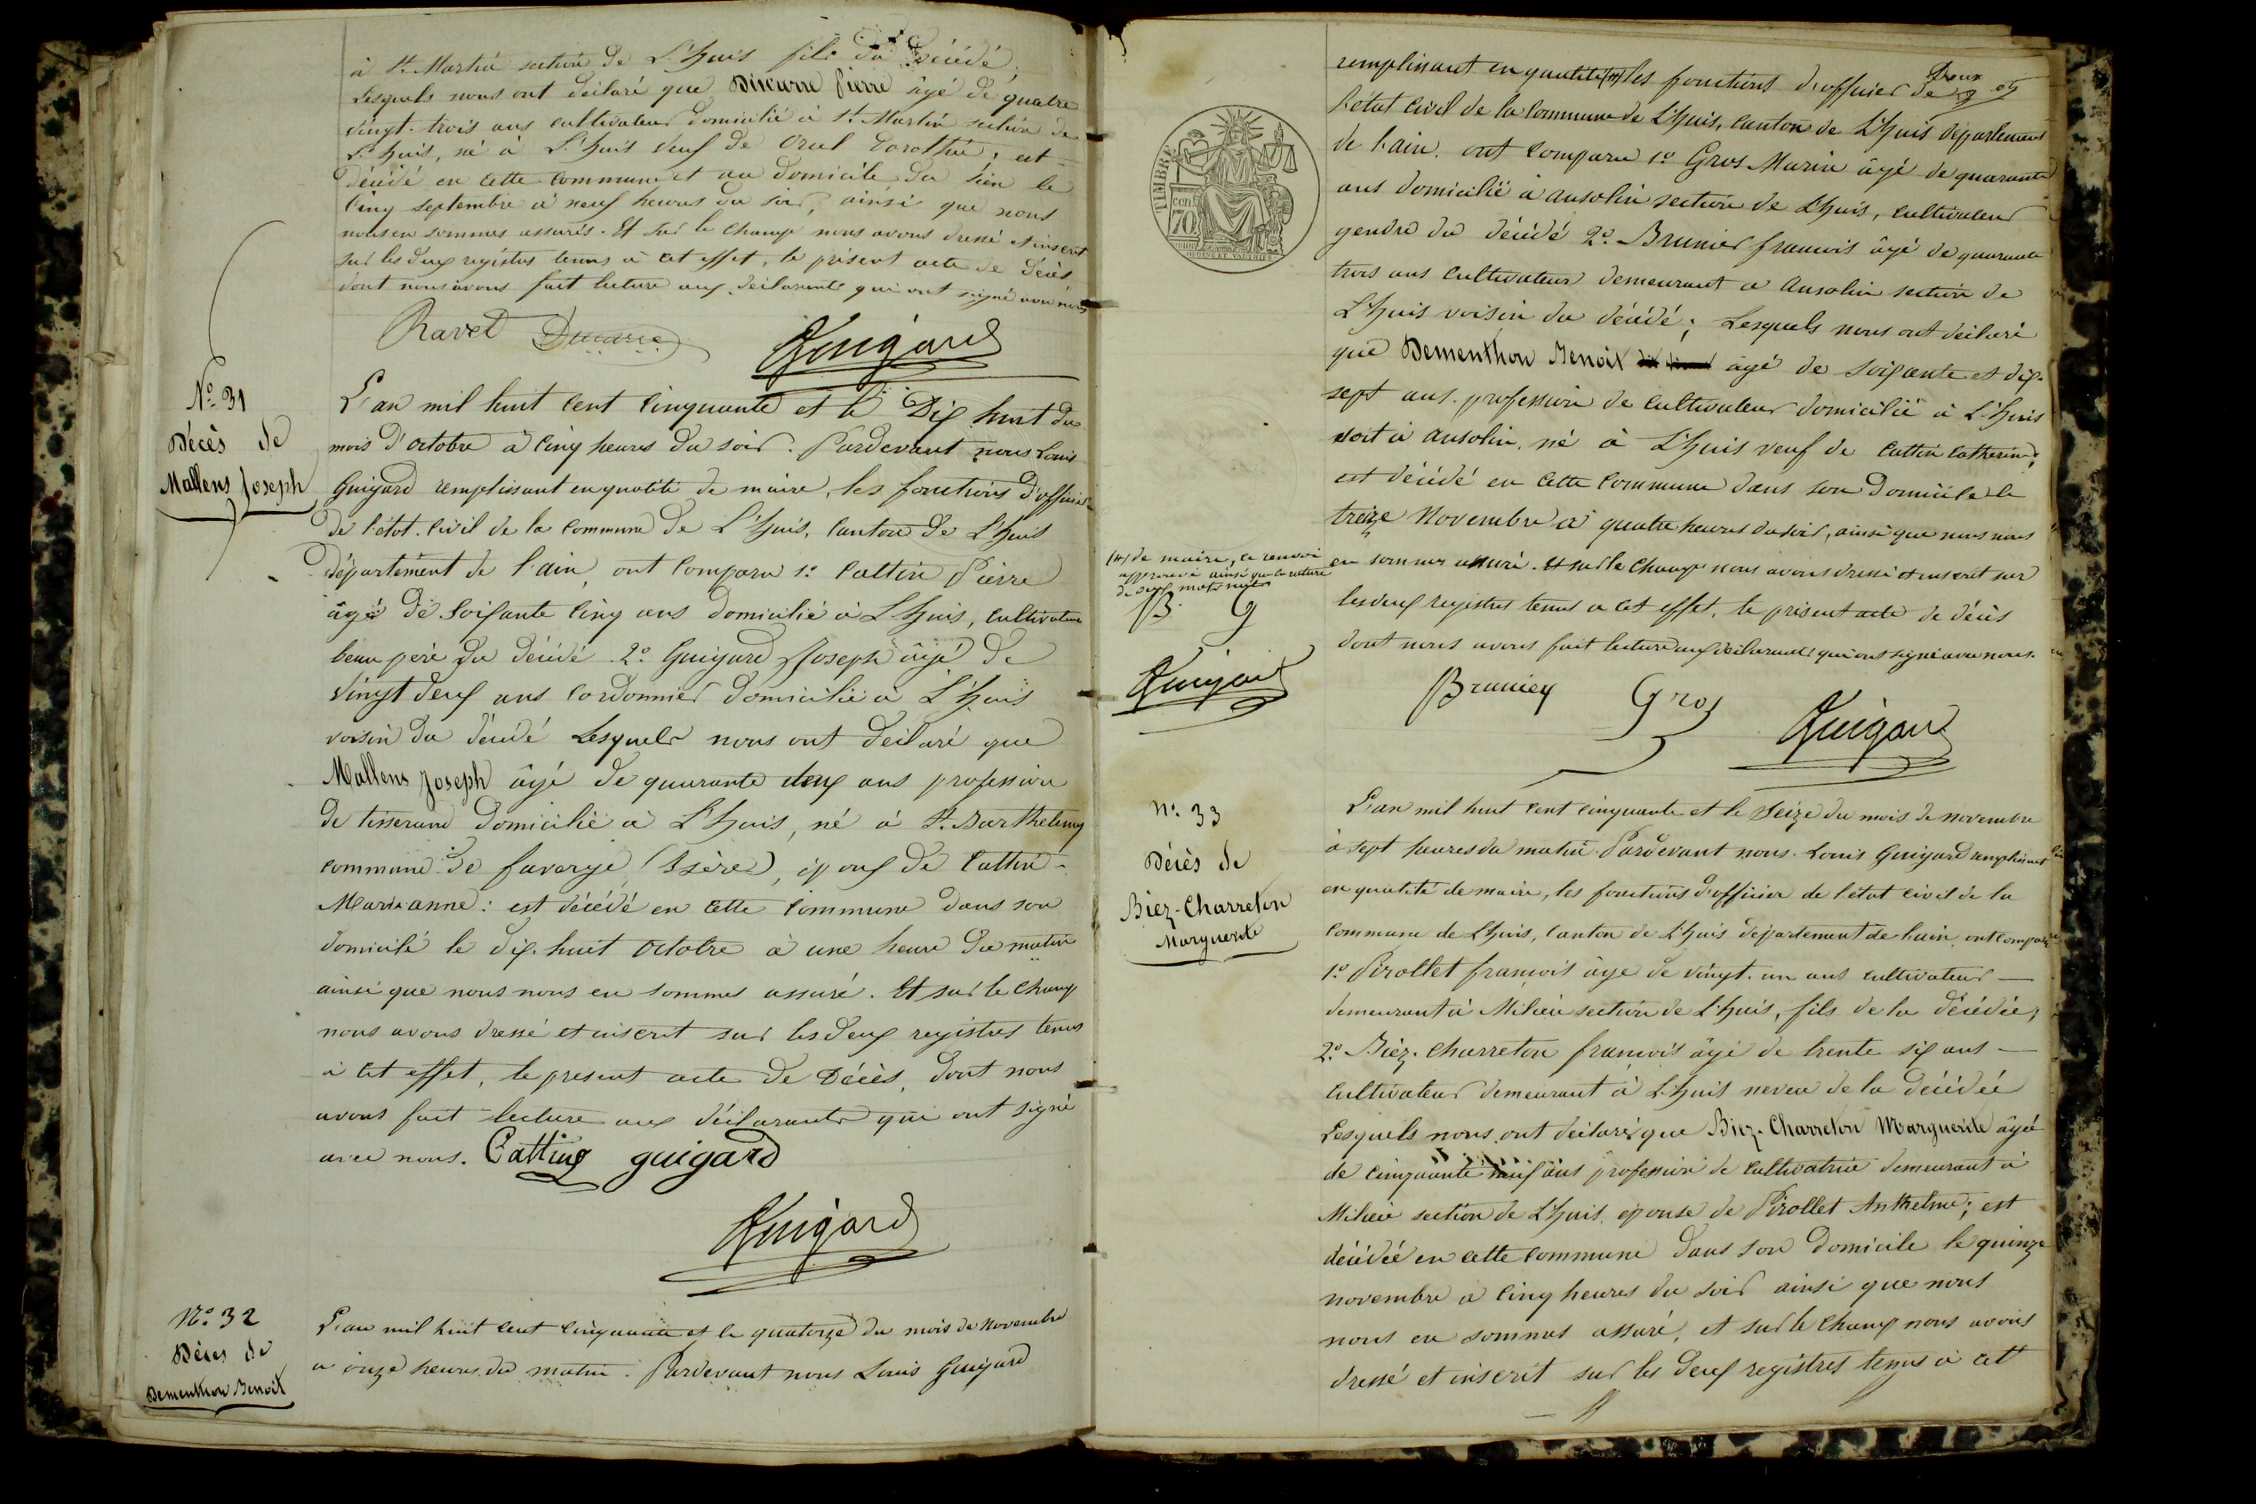 à St. Martin section de L'huis fils du décédé,
Lesquels nous ont déclaré que Ducarre Pierre âgé de quatre
vingt-trois ans cultivateur domicilié à St. Martin section de
L'huis, né à L'huis veuf de Dorothée, est
décédé en cette commune et au domicile du sien le
cinq septembre à neuf heures du soir, ainsi que nous
nous en sommes assurés. Et sur le champ nous avons dressé et inscrit
sur les deux registres tenus à cet effet, le présent acte de décès
dont nous avons fait lecture aux déclarants qui ont signé avec nous
Ravet Ducarre Guigard
No. 31
Décès de
Mallens Joseph
L'an mil huit cent cinquante et le Dix huit du
mois d'octobre à cinq heures du soir. Pardevant nous Louis
Guigard remplissant en qualité de maire, les fonctions d'officier
de l'état civil de la commune de L'huis, canton de L'huis
département de l'ain, ont comparu 1o. Cattin Pierre
âgé de soixante cinq ans domicilié à L'huis, cultivateur
beau père du décédé 2o. Guigard Joseph âgé de
vingt deux ans cordonnier domicilié à L'huis
voisin du décédé Lesquels nous ont déclaré que
Mallens Joseph âgé de quarante deux ans profession
de tisserand domicilié à L'huis, né à St. Barthelemy
commune de faverge (Isère), époux de Cattin
Marie anne: est décédé en cette commune dans son
domicile le dix-huit octobre à une heure du matin
ainsi que nous nous en sommes assuré. Et sur le champ
nous avons dressé et inscrit sur les deux registres tenus
à cet effet, le présent acte de Décès, dont nous
avons fait lecture aux déclarants qui ont signé
avec nous. Cattin guigard
Guigard
No. 32
Décès de
Dementhon Benoit
L'an mil huit cent cinquante et le quatorze du mois de novembre
à onze heures du matin. Pardevant nous Louis Guigard
TIMBRE
70
remplissant en qualité (x) les fonctions d'officier de
l'état civil de la commune de L'huis, canton de L'huis département
de l'ain, ont comparu 1o. Gros Marin âgé de quarante
ans domicilié à ansolin section de L'huis, cultivateur
gendre du décédé 2o. Brunier francois âgé de quarante
trois ans cultivateur demeurant à ansolin section de
L'huis voisin du décédé; Lesquels nous ont déclaré
que Dementhon Benoit âgé de soixante et dix-
sept ans. profession de cultivateur domicilié à L'huis
soit à ansolin, né à L'huis veuf de Cattin Catherine,
est décédé en cette commune dans son domicile le
treize Novembre à quatre heures du soir, ainsi que nous nous
en sommes assuré. Et sur le champ nous avons dressé et inscrit sur
les deux registres tenus à cet effet, le présent acte de décès
dont nous avons fait lecture aux déclarants qui ont signé avec nous.
(x) de maire, ce renvoi
approuvé ainsi que la rature
de sept mots nuls
B. G
Guigard
Brunier Gros Guigard
No. 33
Décès de
Biez-Charreton
Marguerite
L'an mil huit cent cinquante et le Seize du mois de novembre
à sept heures du matin. Pardevant nous Louis Guigard remplissant
en qualité de maire, les fonctions d'officier de l'état civil de la
commune de L'huis, canton de L'huis département de l'ain, ont comparu
1o. Pirollet françois âgé de vingt-un ans cultivateur
demeurant à Milieu section de L'huis, fils de la décédée,
2o. Biez-Charreton françois âgé de trente six ans
cultivateur demeurant à L'huis neveu de la décédée
Lesquels nous ont déclaré que Biez-Charreton Marguerite âgée
de cinquante neuf ans profession de cultivatrice demeurant à
Milieu section de L'huis, épouse de Pirollet Anthelme; est
décédée en cette commune dans son domicile le quinze
novembre à cinq heures du soir ainsi que nous
nous en sommes assuré, et sur le champ nous avons
dressé et inscrit sur les deux registres tenus à cet